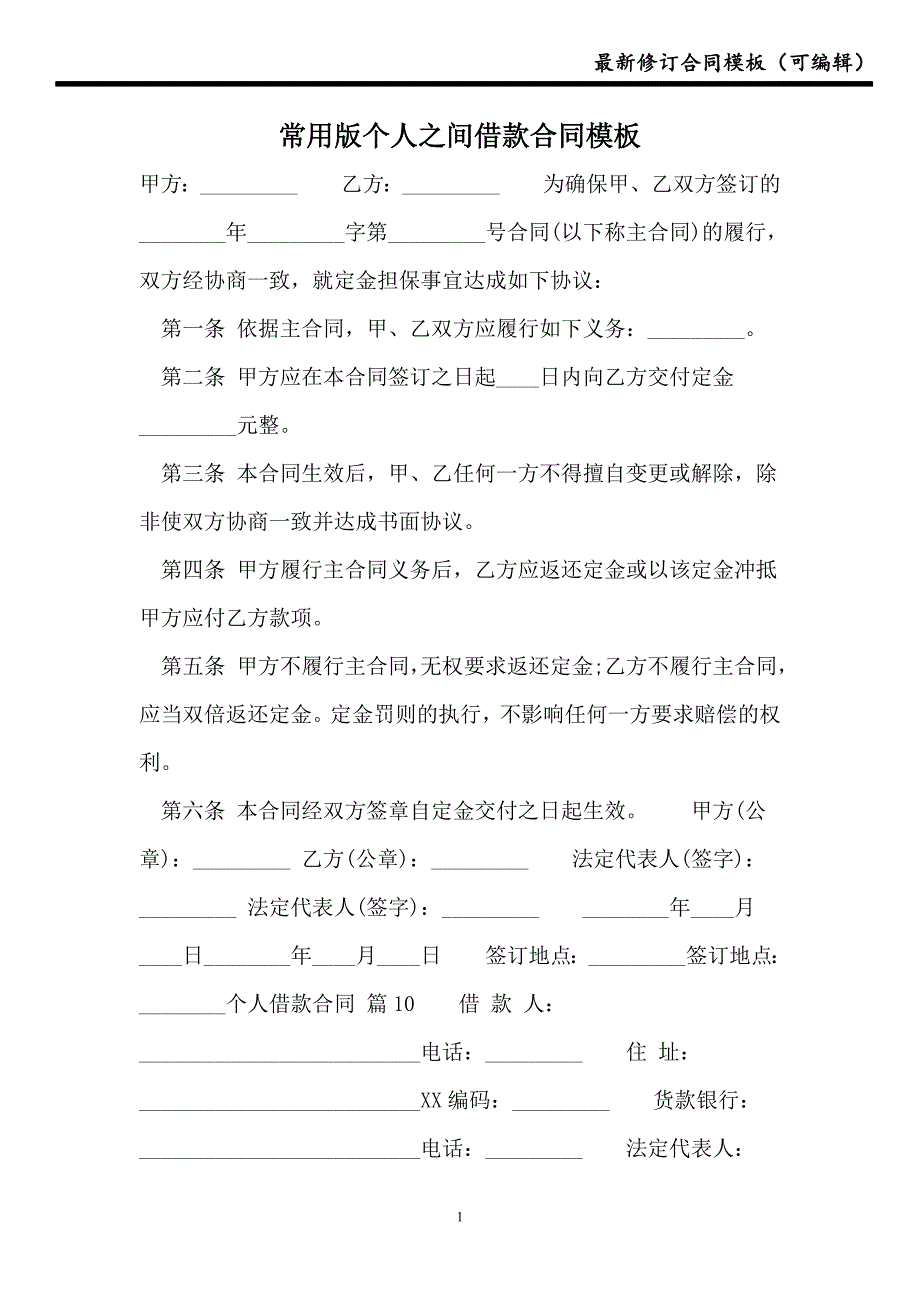 最新修订合同模板（可编辑）
常用版个人之间借款合同模板
甲方：_________　　乙方：_________　　为确保甲、乙双方签订的
________年_________字第_________号合同(以下称主合同)的履行，
双方经协商一致，就定金担保事宜达成如下协议：
第一条 依据主合同，甲、乙双方应履行如下义务：_________。
第二条 甲方应在本合同签订之日起____日内向乙方交付定金
_________元整。
第三条 本合同生效后，甲、乙任何一方不得擅自变更或解除，除
非使双方协商一致并达成书面协议。
第四条 甲方履行主合同义务后，乙方应返还定金或以该定金冲抵
甲方应付乙方款项。
第五条 甲方不履行主合同，无权要求返还定金;乙方不履行主合同，
应当双倍返还定金。定金罚则的执行，不影响任何一方要求赔偿的权
利。
第六条 本合同经双方签章自定金交付之日起生效。　　甲方(公
章)：_________ 乙方(公章)：_________　　法定代表人(签字)：
_________ 法定代表人(签字)：_________　　________年____月
____日________年____月____日　　签订地点：_________签订地点：
________个人借款合同 篇10　　借 款 人：
__________________________电话：_________　　住 址：
__________________________XX编码：_________　　货款银行：
__________________________电话：_________　　法定代表人：
1